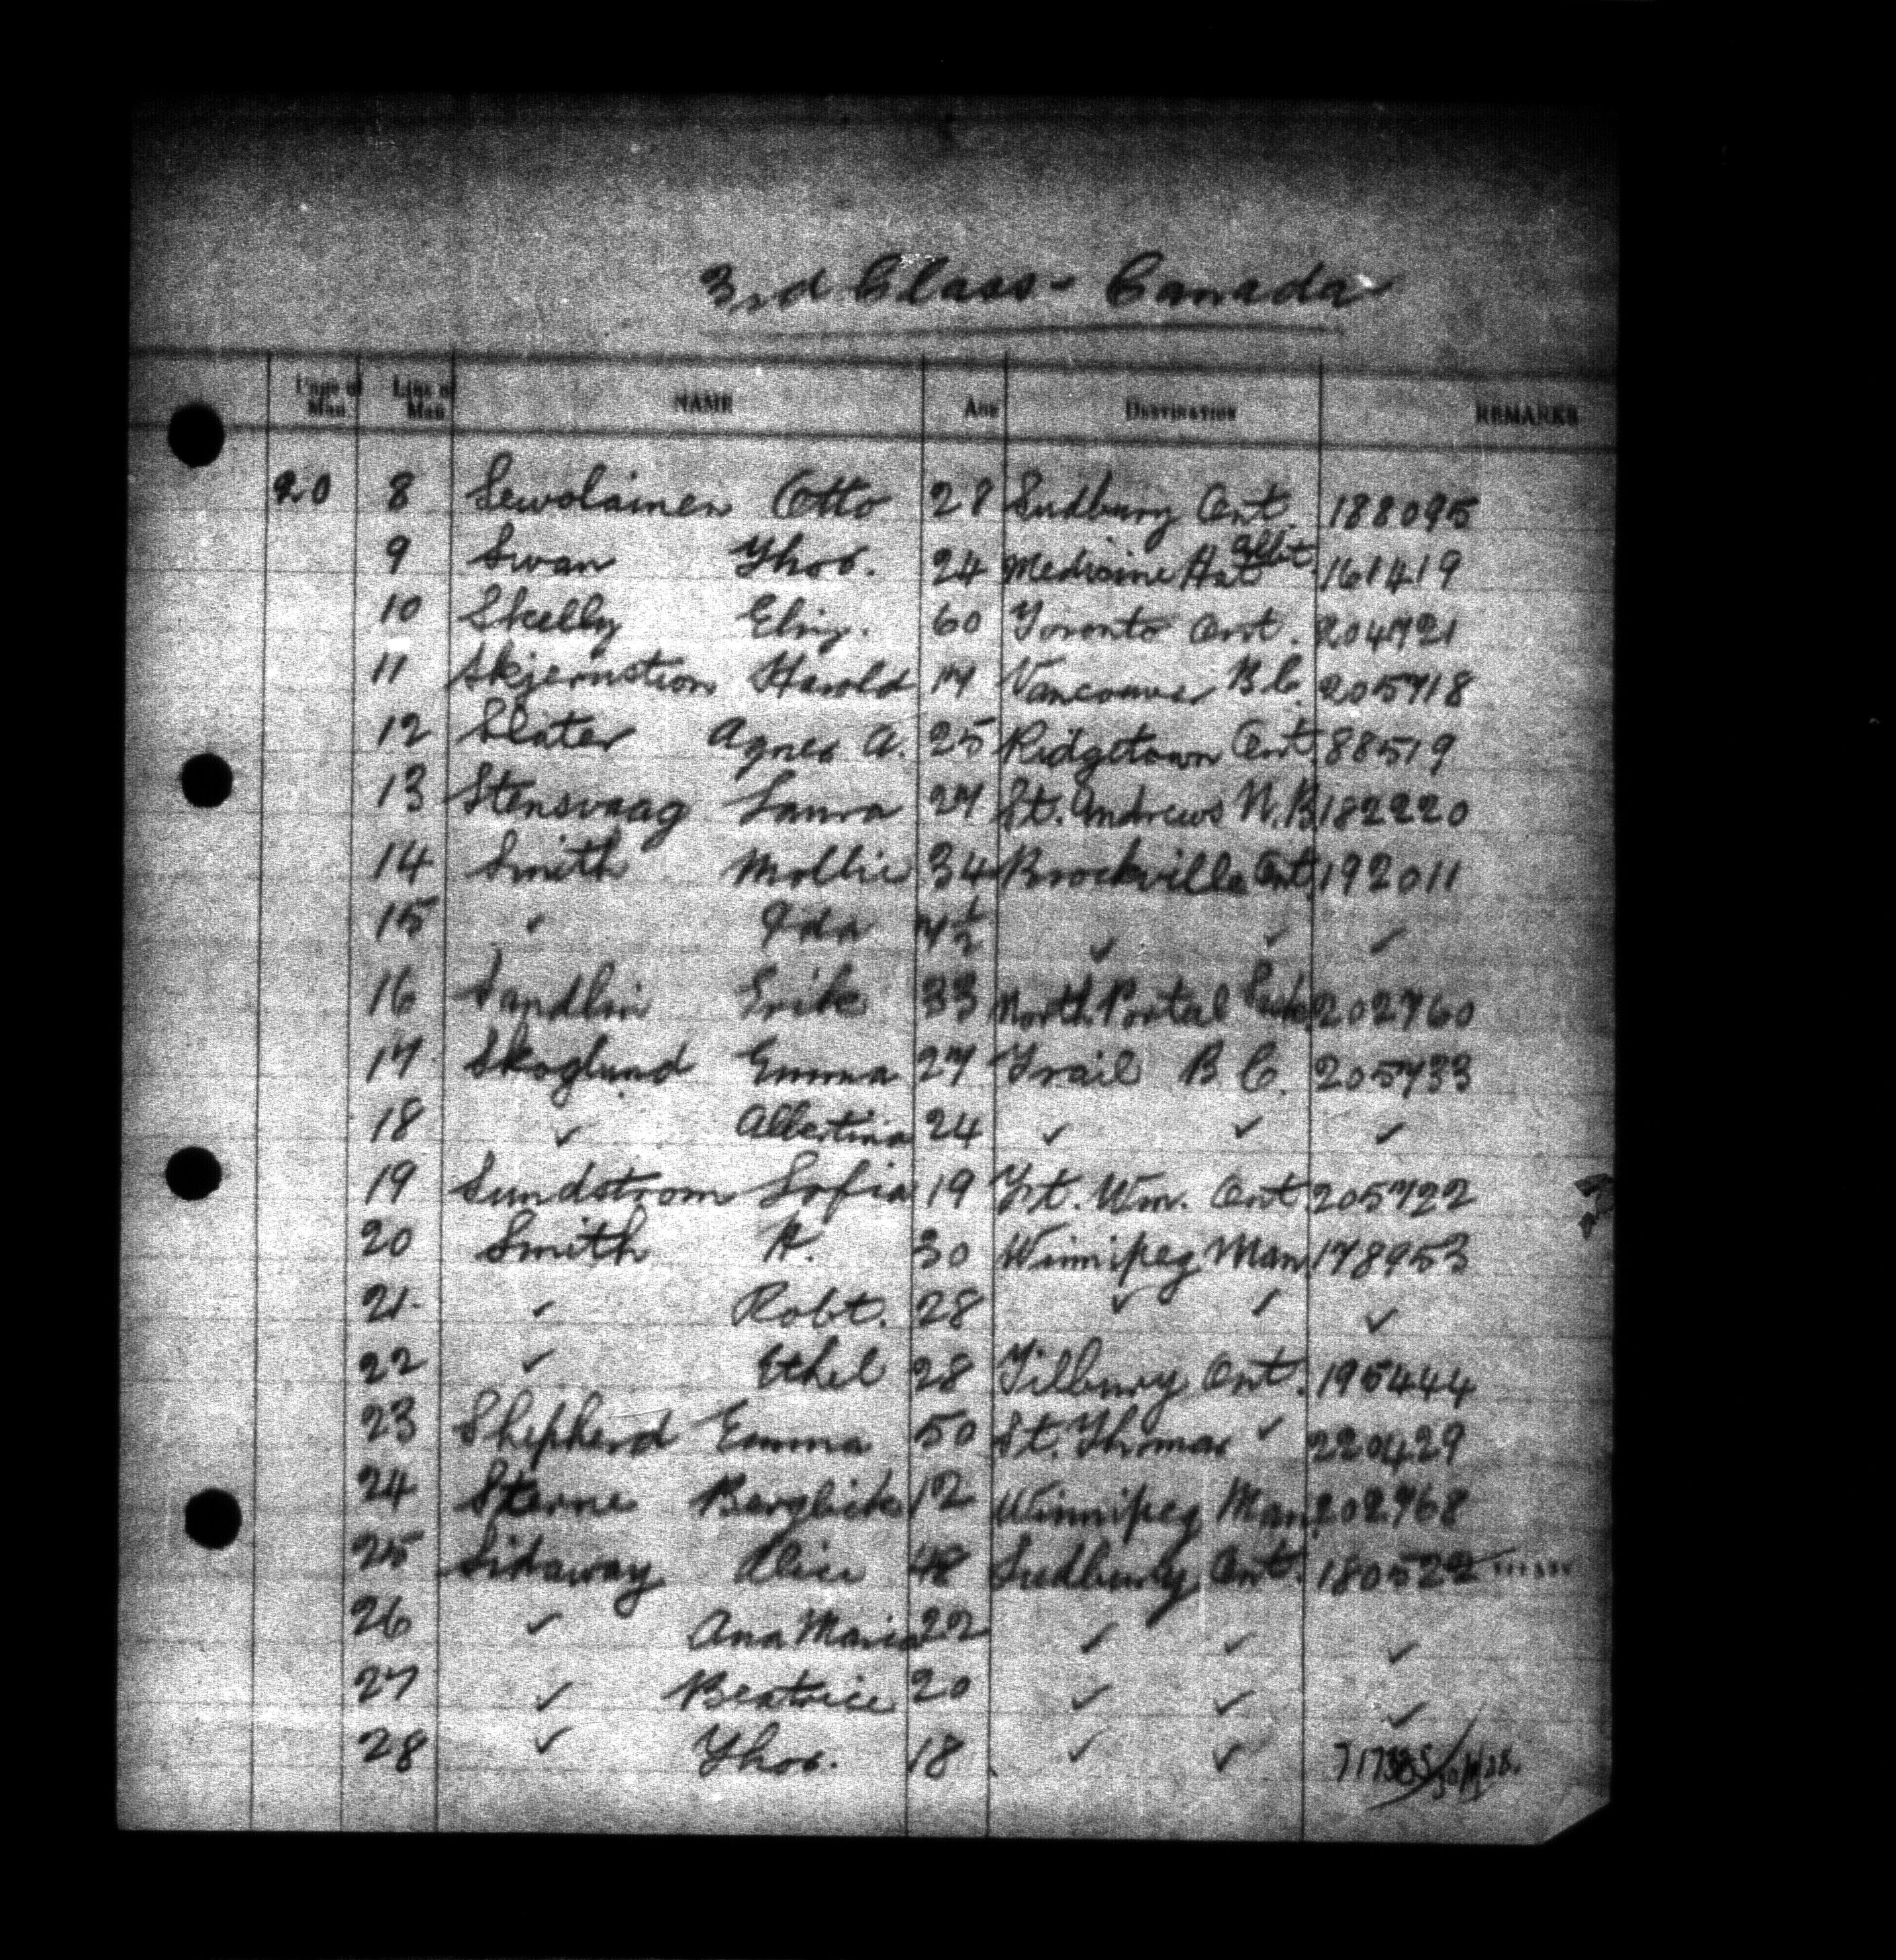 3rd Class - Canada
Page of Man. Line of Man. NAME AGE DESTINATION REMARKS
20 8 Sewolainen Otto 28 Sudbury Ont. 188095
9 Swan Thos. 24 Medicine Hat Albt. 161419
10 Skelly Eliz. 60 Toronto Ont. 204721
11 Skjernstion Harold 17 Vancouver B.C. 205718
12 Slater Agnes A. 25 Ridgetown Ont. 88519
13 Stensvaag Laura 27 St. Andrews N.B. 182220
14 Smith Mollie 34 Brockville Ont. 192011
15 ✓ Ida 7½ ✓ ✓ ✓
16 Sandlin Erik 33 North Portal Sask 202760
17 Skoglund Emma 27 Trail B C. 205733
18 ✓ Albertina 24 ✓ ✓ ✓
19 Sundstrom Sofia 19 Ft. Wm. Ont. 205722
20 Smith H. 30 Winnipeg Man. 178953
21 ✓ Robt. 28 ✓ ✓ ✓
22 ✓ Ethel 28 Tilbury Ont. 195444
23 Shepherd Emma 50 St. Thomas ✓ 220429
24 Sterne 12 Winnipeg Man. 202768
25 Sidaway Alice 48 Sudbury Ont. 180522
26 ✓ Ana Maria 22 ✓ ✓ ✓
27 ✓ Beatrice 20 ✓ ✓ ✓
28 ✓ Thos. 18 ✓ ✓